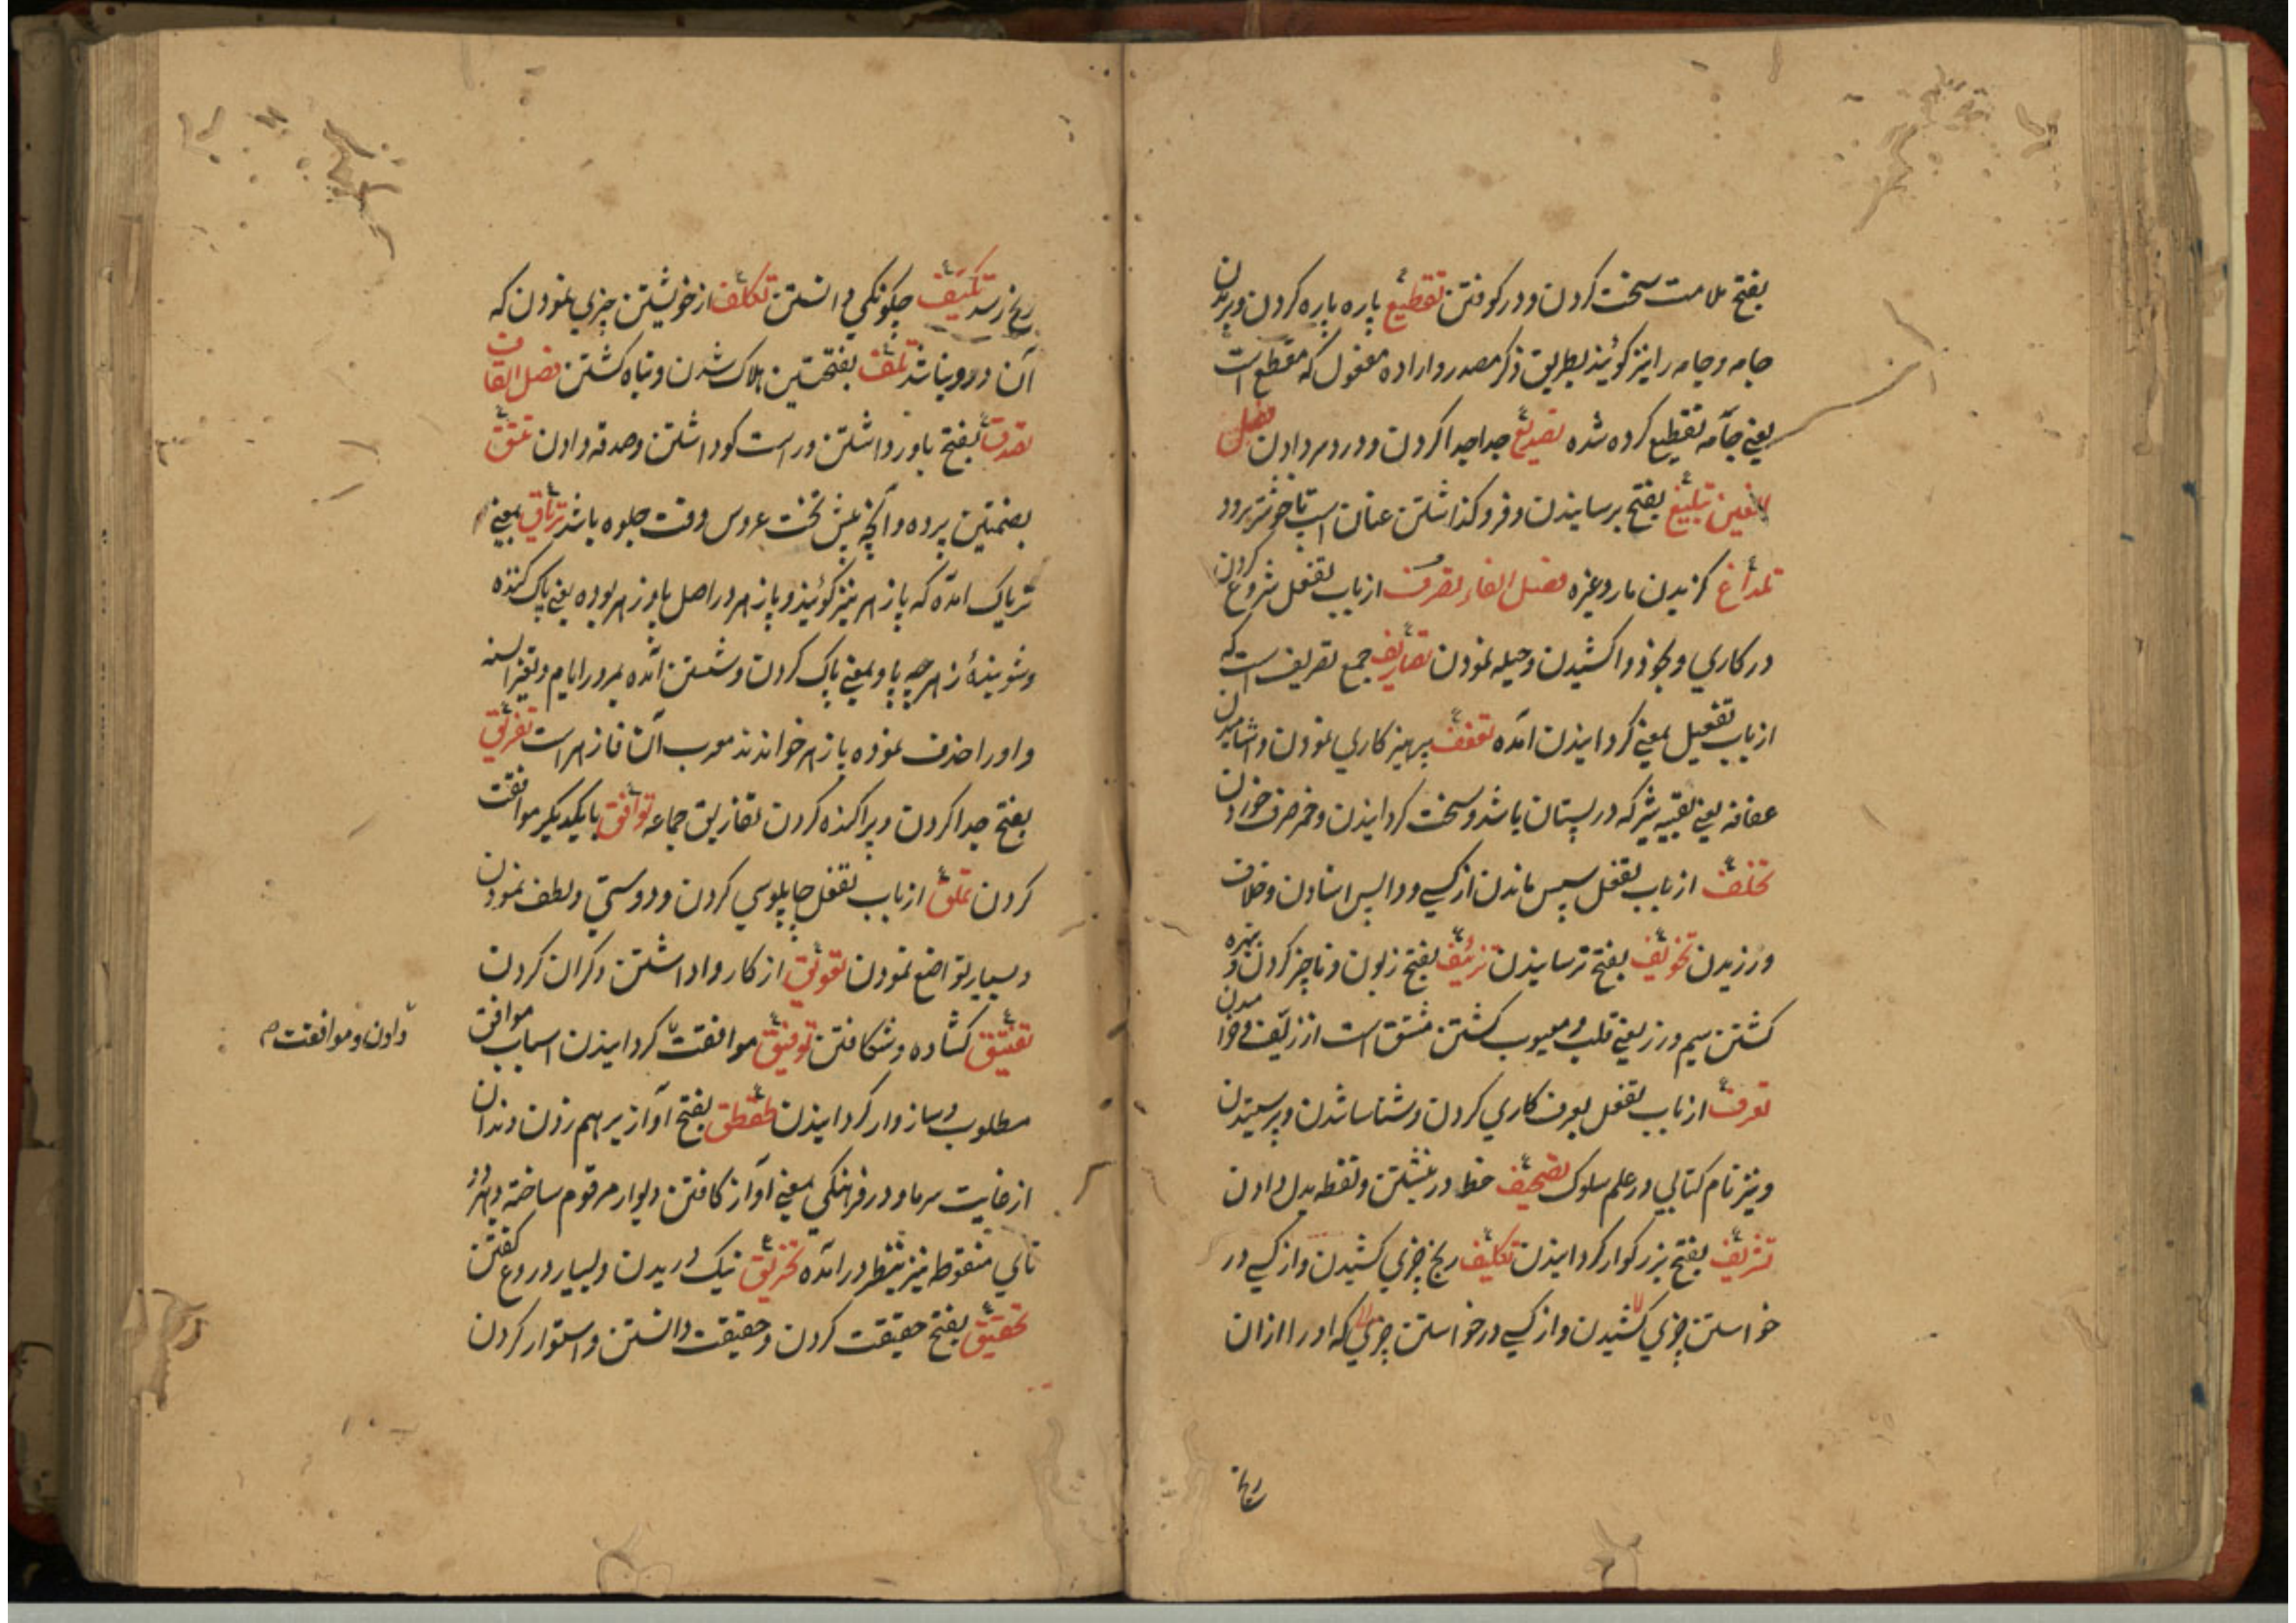 بفتح ملامت سخت کردن و در کوفتن تقطیع پاره پاره کردن و بریدن
جامه و جامه را نیز کویند بطریق ذکر مصدر و اراده مفعول که مقطع است
یعنی جامه تقطیع کرده شده تصدیع جدا جدا کردن و درد سر دادن فصل
الغین تبلیغ بفتح برسانیدن و فرو کذاشتن عنان اسپ تا خوشتر رود
تمداغ کزیدن مار و غیره فصل الفاء تصرف از باب تفعل شروع کردن
در کاری و بخود واکشیدن و حیله نمودن تصاریف جمع تصریف است که
از باب تفعیل بمعنی کردانیدن آمده تعفف پرهیز کاری نمودن و اشامیدن
عفافه یعنی بقیه شیر که در پستان باشد و سخت کردانیدن و خمر صرف خوردن
تخلف از باب تفعل سپس ماندن از کسی و واپس استادن و خلاف
ورزیدن تخویف بفتح ترسانیدن تزییف بفتح زبون و ناچیز کردن و بهره
کشتن سیم و زر یعنی قلب و معیوب کشتن مشتق است از زیف و خوامیدن
تعرف از باب تفعل بعرف کاری کردن و شناسا شدن و پرسیدن
و نیز نام کتابی در علم سلوک تصحیف خطا در نبشتن و نقطه بدل دادن
تشریف بفتح بزرکوار کردانیدن تکلیف رنج چیزی کشیدن و از کسی در
خواستن چیزی کشیدن و از کسی درخواستن چیزی که او را از ان
رنج
رنج رسد تکیف چکونکی دانستن تکلف از خویشتن چیزی نمودن که
آن درو نباشد تلف بفتحتین هلاک شدن و تباه کشتن فصل القاف
تصدق بفتح باور داشتن و راست کو داشتن و صدقه دادن تتق
بضمتین پرده و آنچه پیش تخت عروس وقت جلوه باشد تریاق بمعنی
تریاک امده که پازهر نیز کویند و پازهر در اصل پاوزهر بوده یعنی پاک کننده
و شوینده زهر چه پاو بمعنی پاک کردن و شستن آمده بمرور ایام و تغیر السنه
واو را حذف نموده پازهر خواندند معرب آن فازهر است تفریق
بفتح جدا کردن و پراکنده کردن تفاریق جماعه توافق بایکدیکر موافقت
کردن تملق از باب تفعل چاپلوسی کردن و دوستی و لطف نمودن
و بسیار تواضع نمودن تعویق از کار واداشتن و کران کردن
تفتیق کشاده و شکافتن توفیق موافقت کردانیدن اسباب موافق
دادن و موافقت
مطلوب و سازوار کردانیدن طقطق بفتح آواز برهم زدن دندان
از غایت سرما و در فرهنکی بمعنی آواز کافتن دیوار مرقوم ساخته و بهر دو
تای منقوطه نیز بنظر در آمده تخریق نیک دریدن و بسیار دروغ کفتن
تحقیق بفتح حقیقت کردن و حقیقت دانستن و استوار کردن